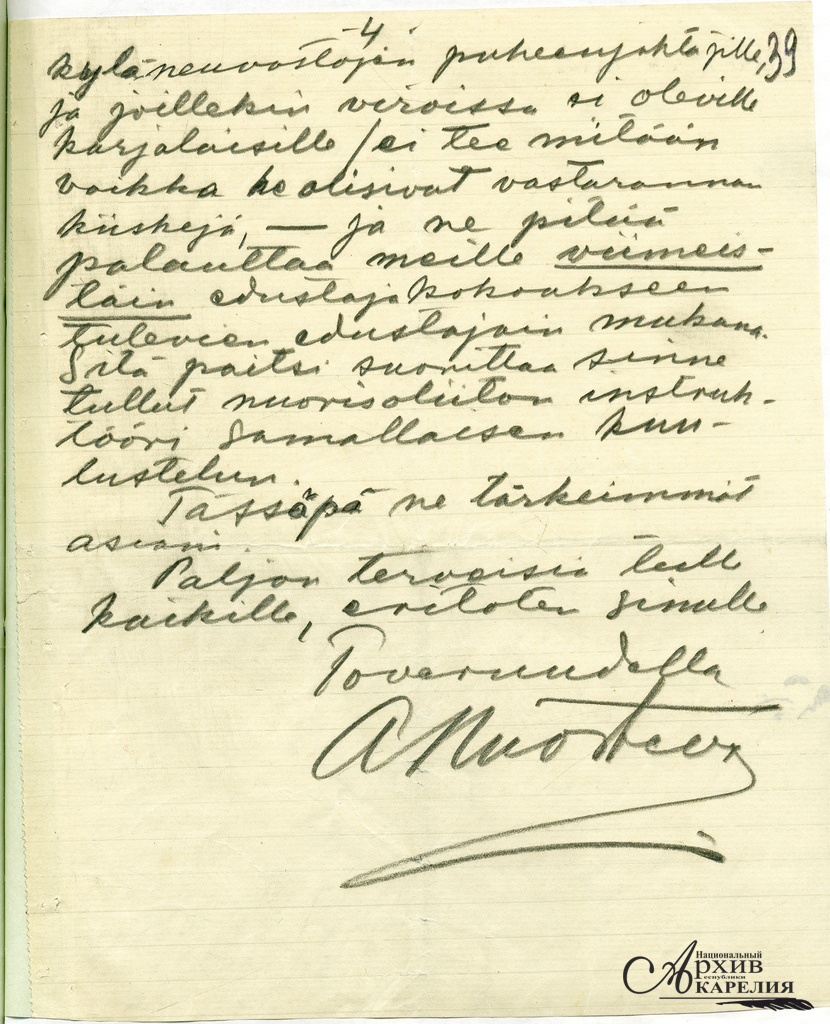 4.
39
kyläneuvostojen puheenjohtajille,
ja joillekin viroissa ei oleville
karjalaisille /ei tee mitään
vaikka he olisivat vastarannan
kiiskejä, — ja ne pitää
palauttaa meille viimeis-
täin edustajakokoukseen
tulevien edustajain mukana.
Sitä paitsi suorittaa sinne
tullut nuorisoliiton instruk-
tööri samallaisen kuu-
lustelun.
Tässäpä ne tärkeimmät
asiani.
Paljon terveisiä teille
kaikille, eritoten Sinulle
Toveruudella
A Nuorteva
Национальный
Архив
Республики
Карелия